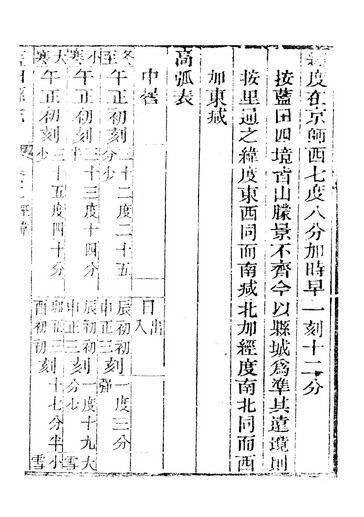 經度在京師西七度八分加時早一刻十二分
按藍田四境皆山朦景不齊今以縣城爲準其遠境則
按里逼之緯度東西同而南減北加經度南北同而西
加東減
高弧表
中晷
日出入
冬至午正初刻三十二度二十五分少
辰初初刻一度三分
申正三刻強
小寒午正初刻三十三度十四分
辰初初刻一度十九分少
申正三刻
大雪
大寒午正初刻三十五度四十分少
卯正三刻十七分半
酉初初刻
小雪